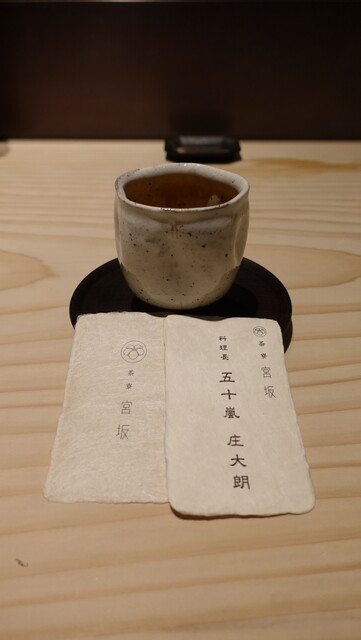 茶寮 宮坂
料理長
五十嵐 庄大朗
茶寮 宮坂